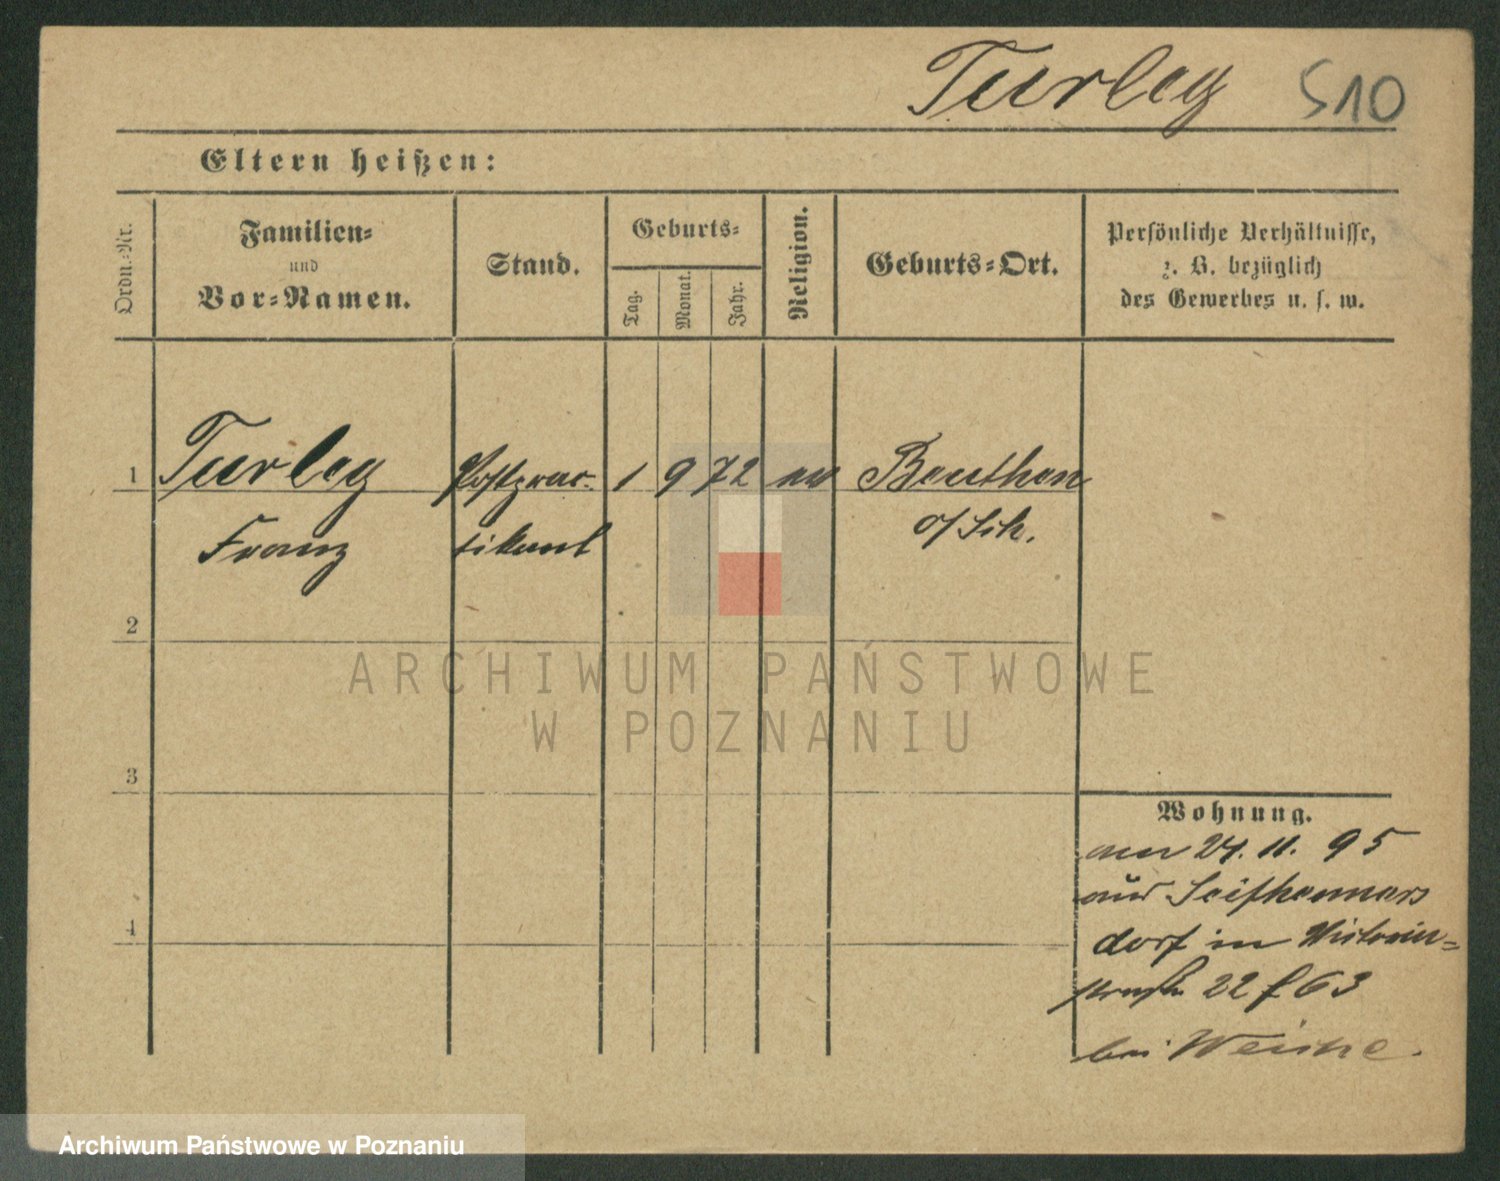 Turley 510
Eltern heißen:
Ordn.-Nr.
Familien-
und
Vor-Namen.
Stand.
Geburts-
Tag.
Monat.
Jahr.
Religion.
Geburts-Ort.
Persönliche Verhältnisse,
z. B. bezüglich
des Gewerbes u. s. w.
1 Turley Postprac- 1 9 72 Beuthen
Franz tikant o/Sch.
2
3
4
Wohnung.
am 24. 11. 95
aus Seifhenners
dorf in Victoria-
straße 22 f 63
bei
ARCHIWUM PAŃSTWOWE
W POZNANIU
Archiwum Państwowe w Poznaniu